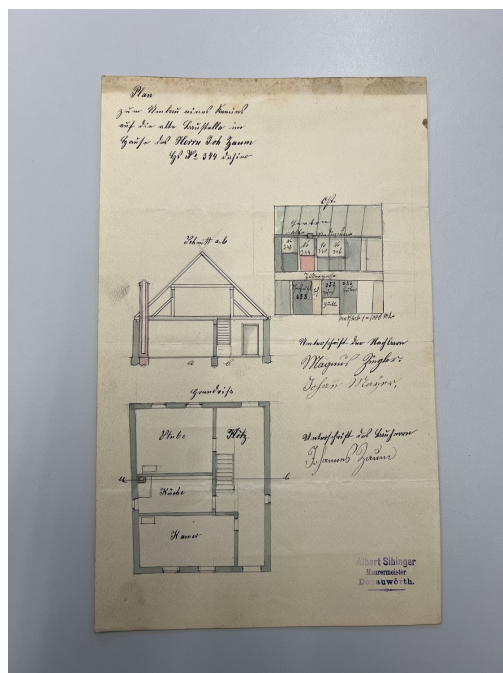 Plan
zum Umbau eines Kamines
auf die alte Baustelle im
Hause des Herrn Joh Zaum
Hs № 344 dahier
Schnitt a.b
Ost.
Garten
a b
Unterschrift der Nachbarn
Magnus Ziegler.
Johan Mayer,
Grundriß
Stube
Flötz
Küche
a b
Kamer
Unterschrift des Bauherrn
Johannes Zaum
Albert Sihinger
Maurermeister
Donauwörth.